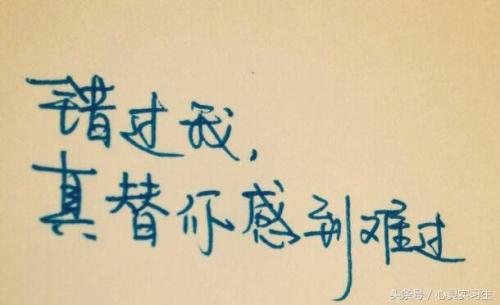 错过我,
真替你感到难过
头条号/心灵实习生